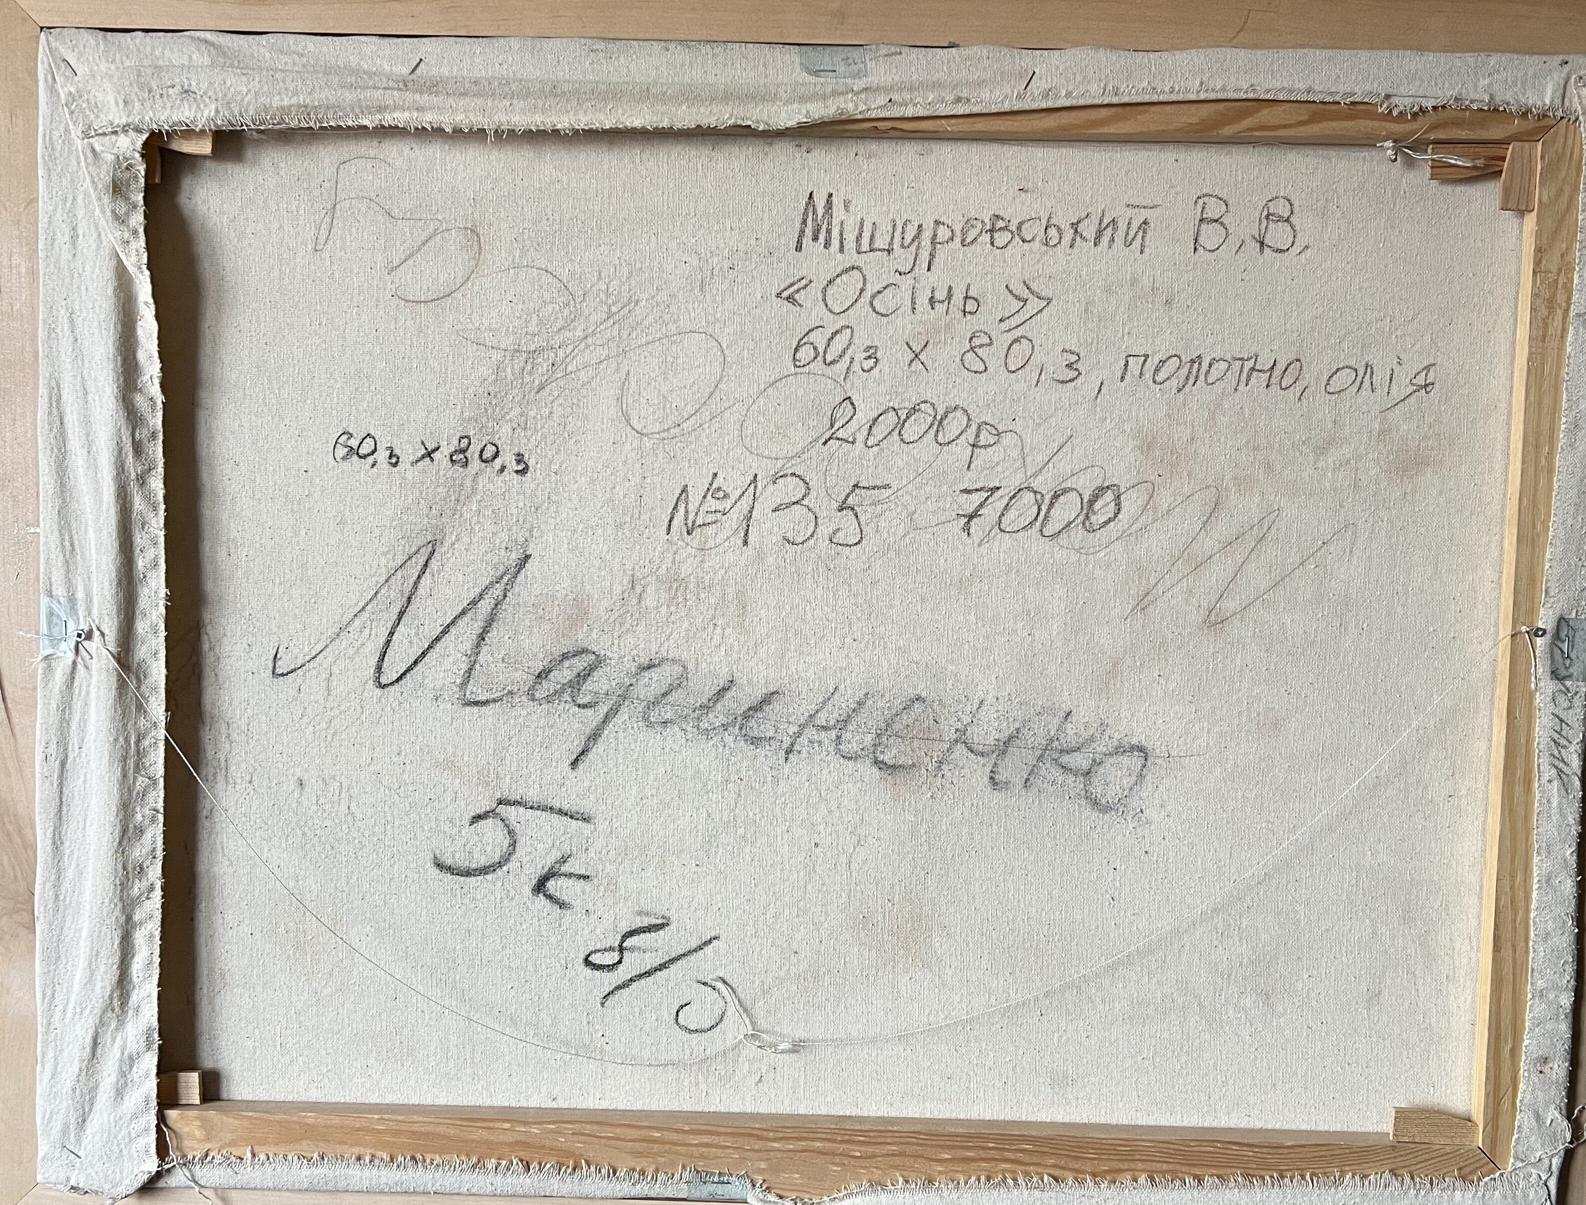 Мішуровський В.В.
«Осінь»
60,3 х 80,3, полотно, олія
2000р
60,3 х 80,3
№135 7000
Мариненко
5к
8/О